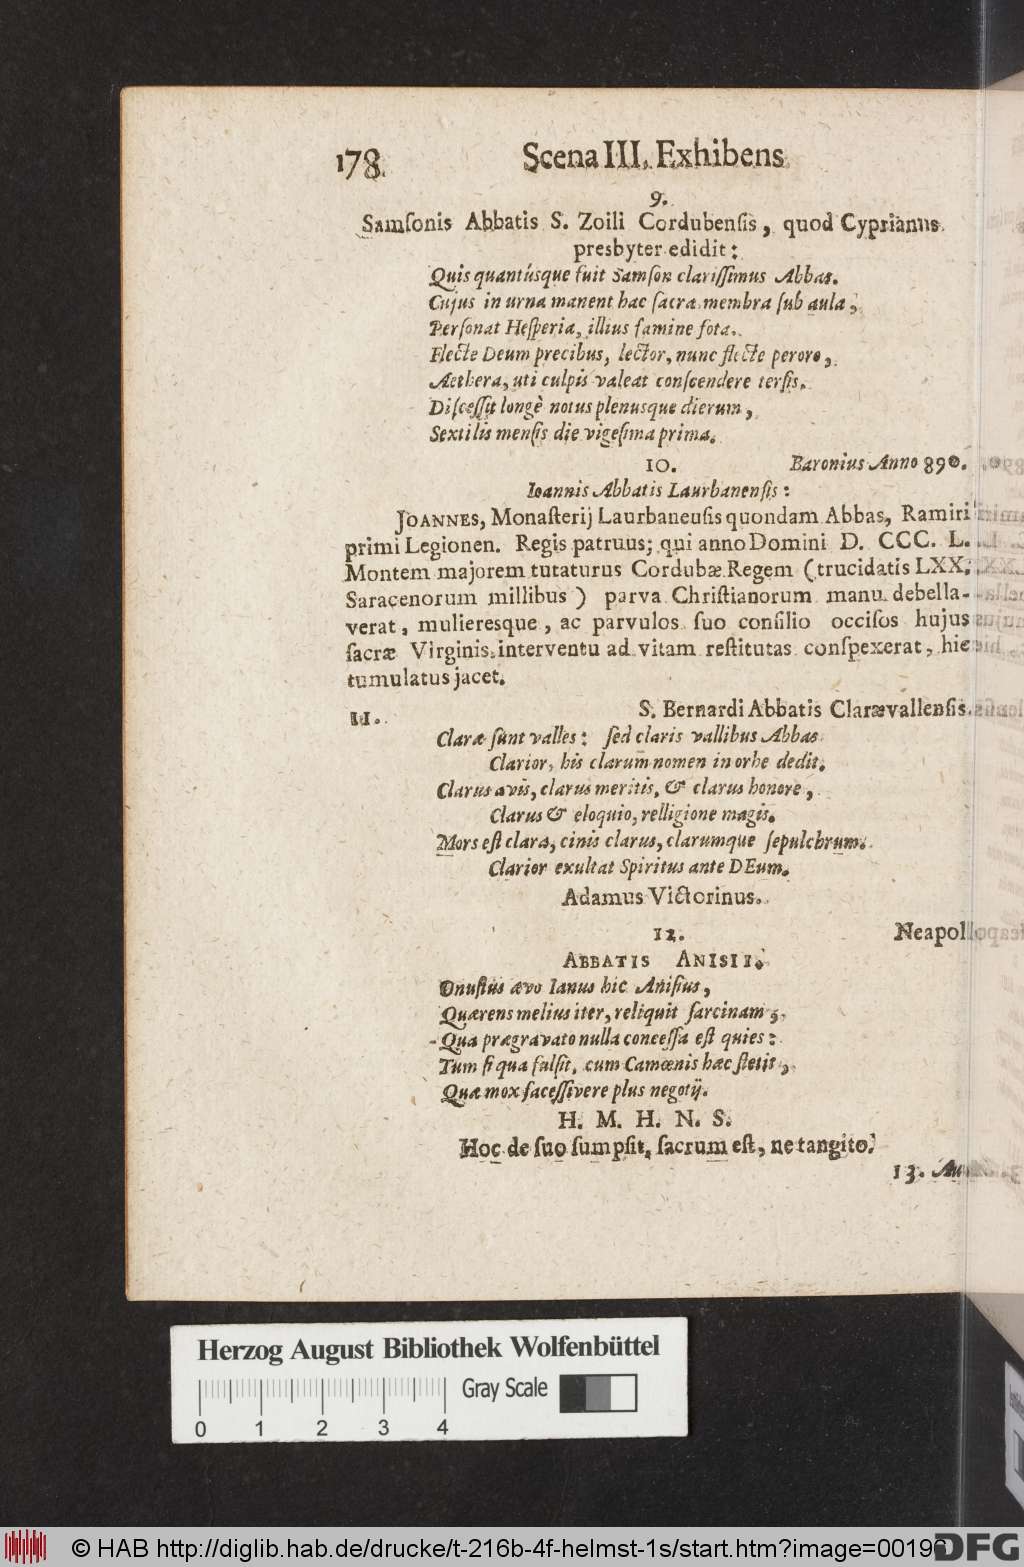 178. Scena III. Exhibens
9.
Samſonis Abbatis S. Zoili Cordubenſis, quod Cyprianus
presbyter edidit:
Quis quantúsque fuit Samſon clariſſimus Abbas.
Cujus in urna manent hac ſacra membra ſub aula,
Perſonat Heſperia, illius famine fota.
Flecte Deum precibus, lector, nunc flecte peroro,
Aethera, uti culpis valeat conſcendere terſis.
Diſceſſit longè notus plenusque dierum,
Sextilis menſis die vigeſima prima.
10. Baronius Anno 890.
Ioannis Abbatis Laurbanenſis:
JOANNES, Monaſterij Laurbaneuſis quondam Abbas, Ramiri
primi Legionen. Regis patruus; qui anno Domini D. CCC. L.
Montem majorem tutaturus Cordubæ Regem (trucidatis LXX.
Saracenorum millibus) parva Chriſtianorum manu debella-
verat, mulieresque, ac parvulos ſuo conſilio occiſos hujus
ſacræ Virginis interventu ad vitam reſtitutas conſpexerat, hic
tumulatus jacet.
11. S. Bernardi Abbatis Clarævallenſis.
Claræ ſunt valles: ſed claris vallibus Abbas
Clarior, his clarum nomen in orbe dedit.
Clarus avis, clarus meritis, & clarus honore,
Clarus & eloquio, relligione magis.
Mors eſt clara, cinis clarus, clarumque ſepulchrum.
Clarior exultat Spiritus ante DEum.
Adamus Victorinus.
12. Neapol
ABBATIS ANISII.
Onuſtus ævo Ianus hic Aniſius,
Quærens melius iter, reliquit ſarcinam;
Qua prægravato nulla conceſſa eſt quies:
Tum ſi qua fulſit, cum Camœnis hæc ſtetit,
Quæ mox faceſſivere plus negotij.
H. M. H. N. S.
Hoc de ſuo ſumpſit, ſacrum eſt, ne tangito.
13.
Herzog August Bibliothek Wolfenbüttel
Gray Scale
0 1 2 3 4
© HAB http://diglib.hab.de/drucke/t-216b-4f-helmst-1s/start.htm?image=00196
DFG